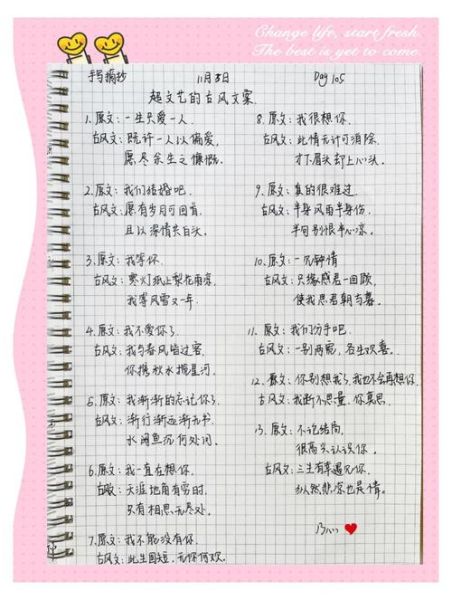 Change life, start fresh
The best is yet to come
手写摘抄
11月3日
Day 105
超文艺的古风文案.
1.原文:一生只爱一人.
古风文:既许一人以偏爱,
愿尽余生之慷慨.
2.原文:我们结婚吧.
古风文:愿有岁月可回首,
且以深情共白头.
3.原文:我等你.
古风文:寒灯纸上梨花雨凉,
我等风雪又一年.
4.原文:我不爱你了.
古风文:我与春风皆过客
你携秋水揽星河.
5.原文:我渐渐的忘记你了.
古风文:渐行渐远渐无书.
水阔鱼沉何处问.
6.原文:我一直在想你.
古风文:天涯地角有穷时.
只有相思无尽处.
7.原文:我不能没有你.
古风文:此生国短,无你何欢.
8.原文:我很想你.
古风文:此情无计可消除.
才下眉头却上心头.
9.原文:真的很难过.
古风文:半身风雨半身伤,
半句别恨半心凉.
10.原文:一见钟情
古风文:只缘感君一回顾,
使我思君朝与暮.
11.原文:我们分手吧.
古风文:一别两宽,各生欢喜.
12.原文:你别想我了,我也不会再想你.
古风文:我断不思量,你莫思.
13.原文:不论结局,
很高兴认识你.
古风文:三生有幸遇见你,
纵然悲凉也是情.